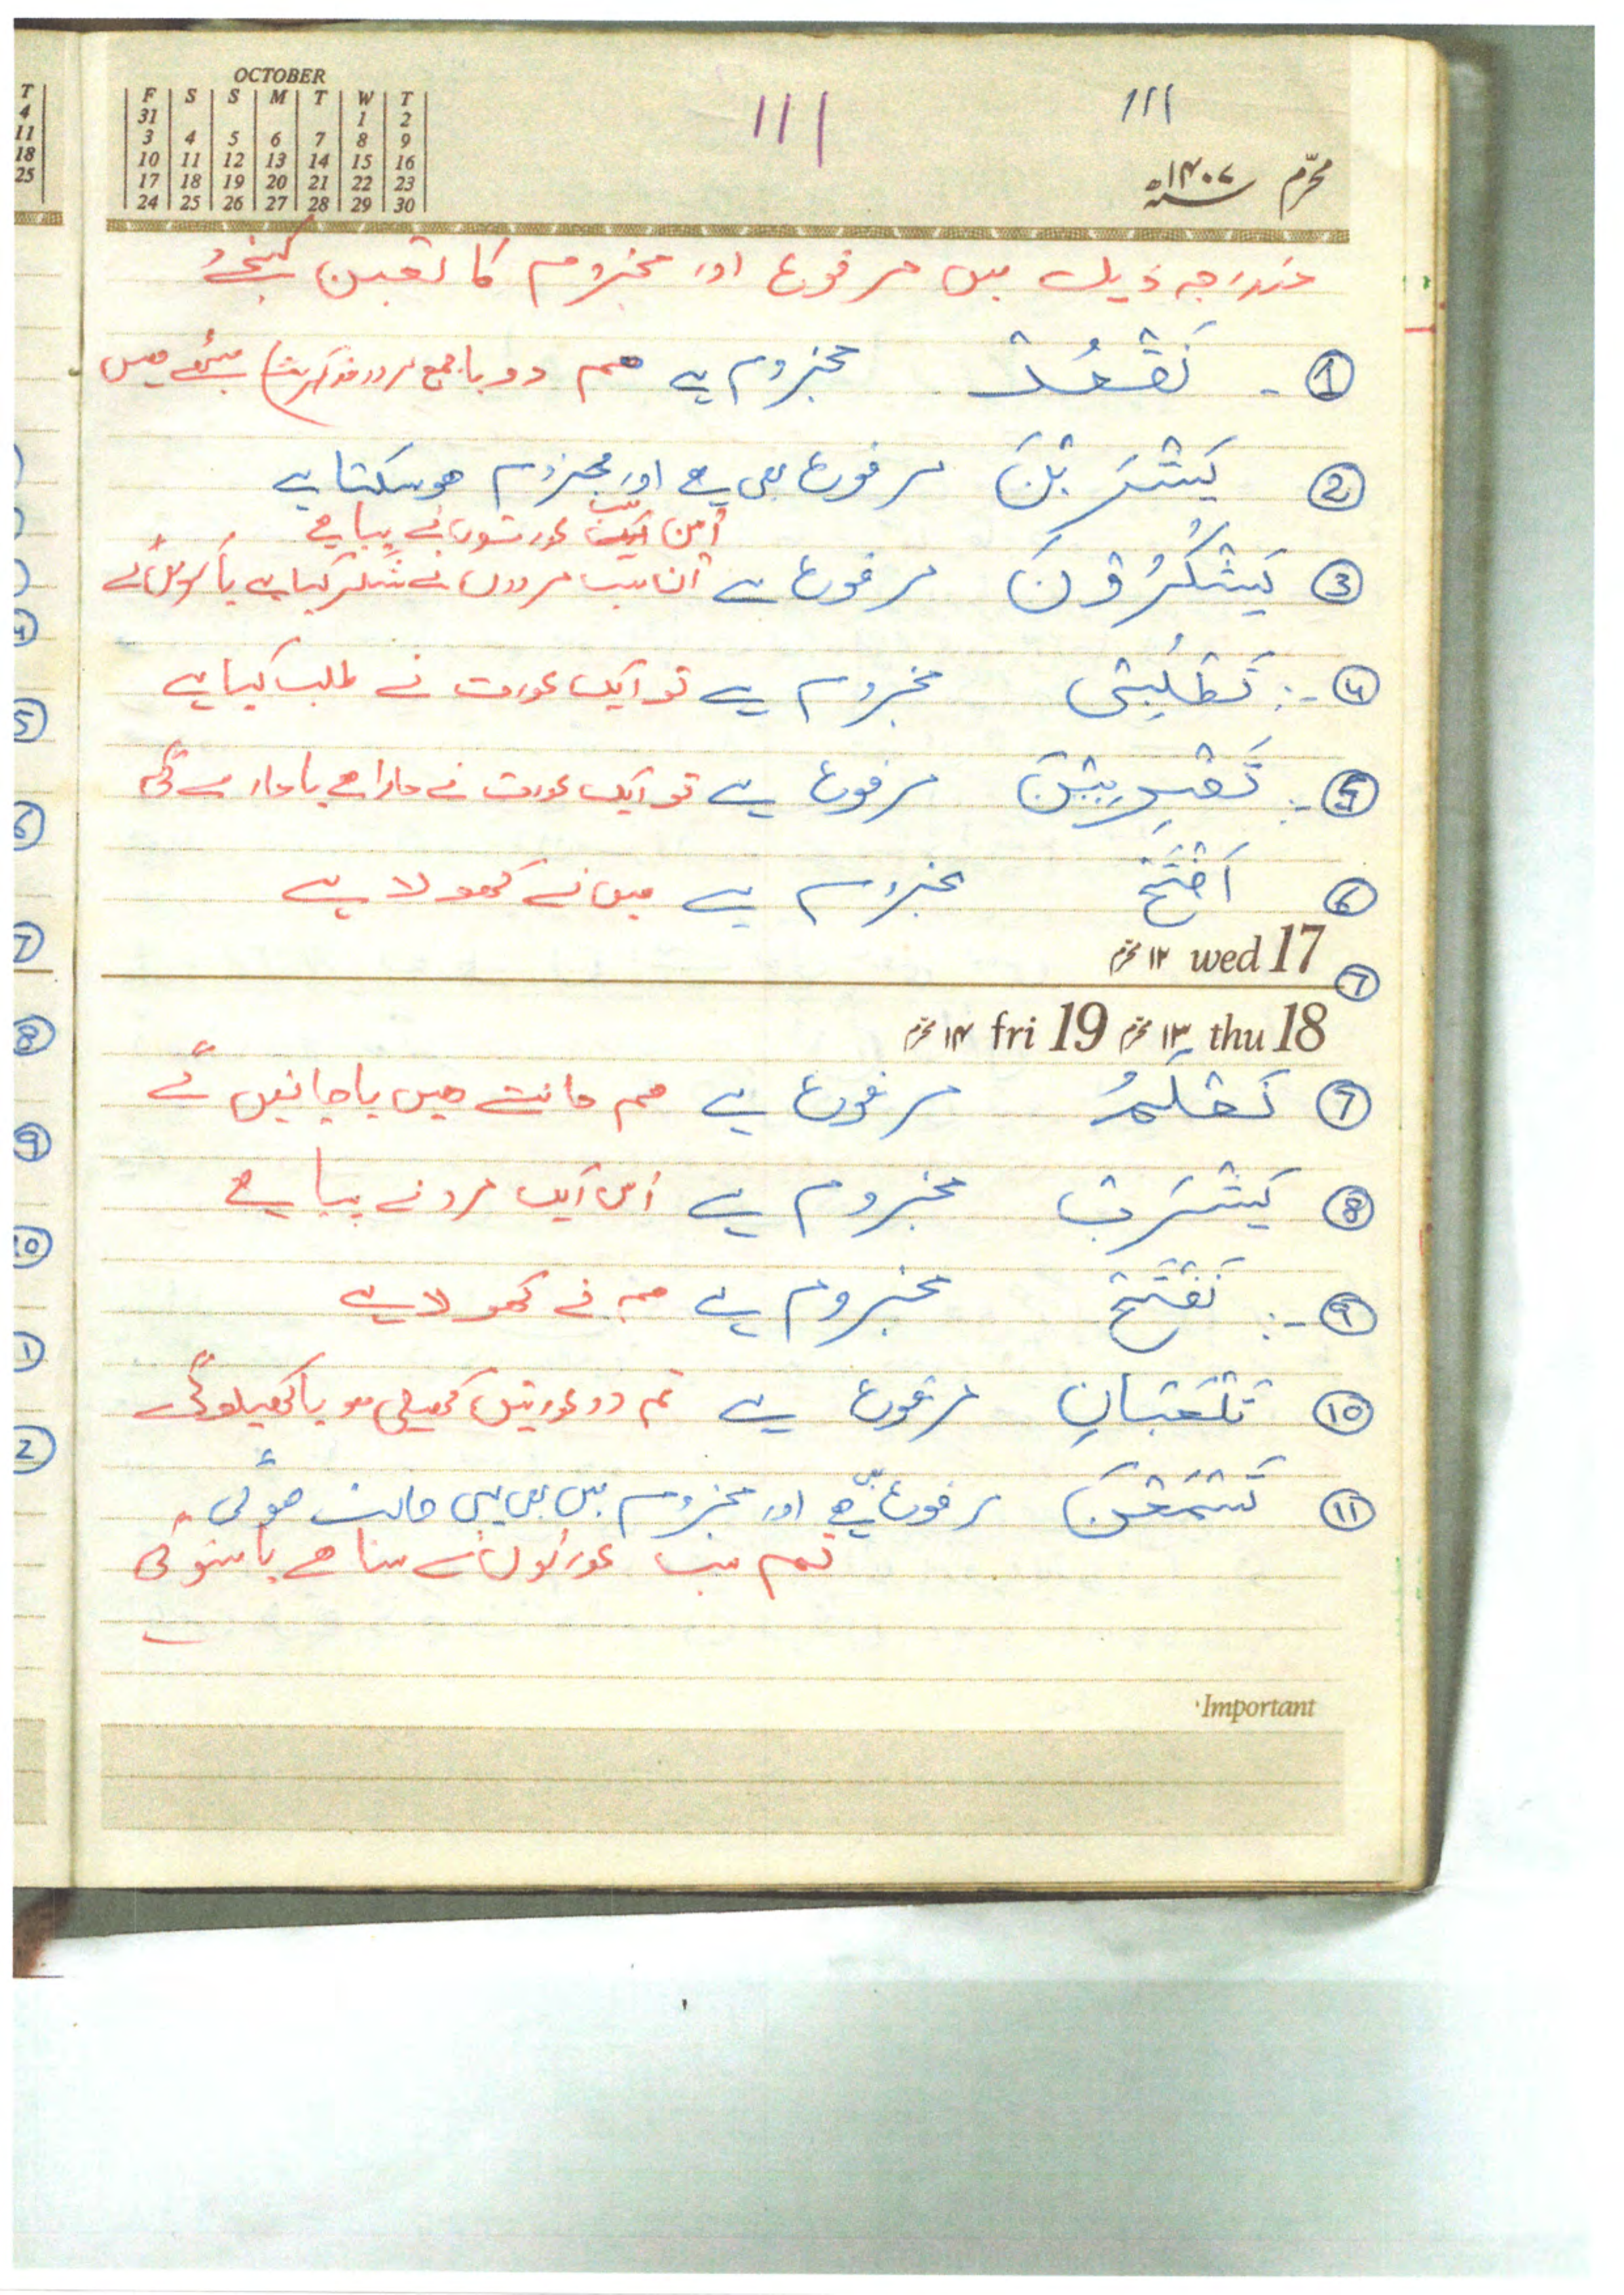 OCTOBER
F S S M T W T
31 1 2
3 4 5 6 7 8 9
10 11 12 13 14 15 16
17 18 19 20 21 22 23
24 25 26 27 28 29 30
111
111
محرّم ۱۴۰۷ھ
مندرجہ ذیل میں مرفوع اور مجزوم کا تعین کیجئے
① - نَقْعُدْ مجزوم ہے ہم دو یا جمع مرد بیٹھے ہیں
② يَشْرَبْنَ مرفوع بھی ہے اور مجزوم ہو سکتا ہے
اُن سب عورتوں نے پیا ہے
③ يَشْكُرُوْنَ مرفوع ہے اُن سب مردوں نے شکر کیا ہے یا کریں گے
④ -: تَطْلُبِیْ مجزوم ہے تو ایک عورت نے طلب کیا ہے
⑤ -: تَضْرِبِيْنَ مرفوع ہے تو ایک عورت نے مارا ہے یا مارے گی
⑥ اَفْتَحْ مجزوم ہے میں نے کھولا ہے
۱۲ محرم wed 17
⑦
۱۴ محرم fri 19 ۱۳ محرم thu 18
⑦ نَعْلَمُ مرفوع ہے ہم جانتے ہیں یا جانیں گے
⑧ يَشْرَبْ مجزوم ہے اُس ایک مرد نے پیا ہے
⑨ -: نَفْتَحْ مجزوم ہے ہم نے کھولا ہے
⑩ تَلْعَبَانِ مرفوع ہے تم دو عورتیں کھیلی ہو یا کھیلو گی
⑪ تَسْمَعْنَ مرفوع بھی ہے اور مجزوم میں بھی یہی حالت ہو گی
تم سب عورتوں نے سنا ہے یا سنو گی
Important
T
4
11
18
25
4
5
6
7
8
9
10
1
2